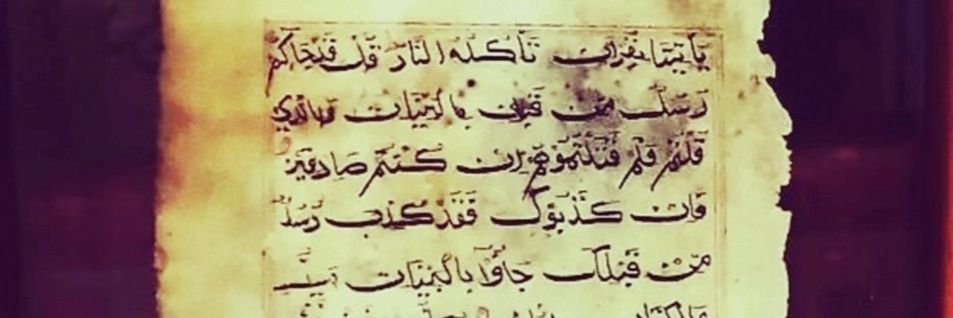 يأتينا بقربان تأكله النار قل قد جاكم
رسل من قبلي بالبينات وبالذي
قلتم فلم قتلتموهم إن كنتم صادقين
فإن كذبوك فقد كذب رسل
من قبلك جاؤا بالبينات